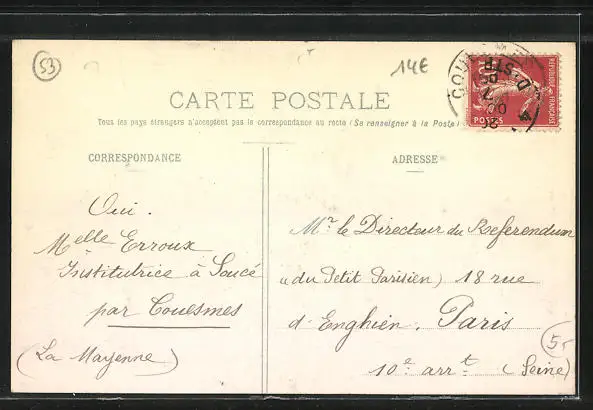 53
14€
CARTE POSTALE
Tous les pays étrangers n'acceptent pas la correspondance au recto (Se renseigner à la Poste)
RÉPUBLIQUE FRANÇAISE
POSTES
CORRESPONDANCE
ADRESSE
Oui.
Melle Erroux
Institutrice à Soucé
par Couesmes
(La Mayenne)
Mr le Directeur du Referendum
"du Petit Parisien) 18 rue
d'Enghien. Paris
10e arrt (Seine)
5-